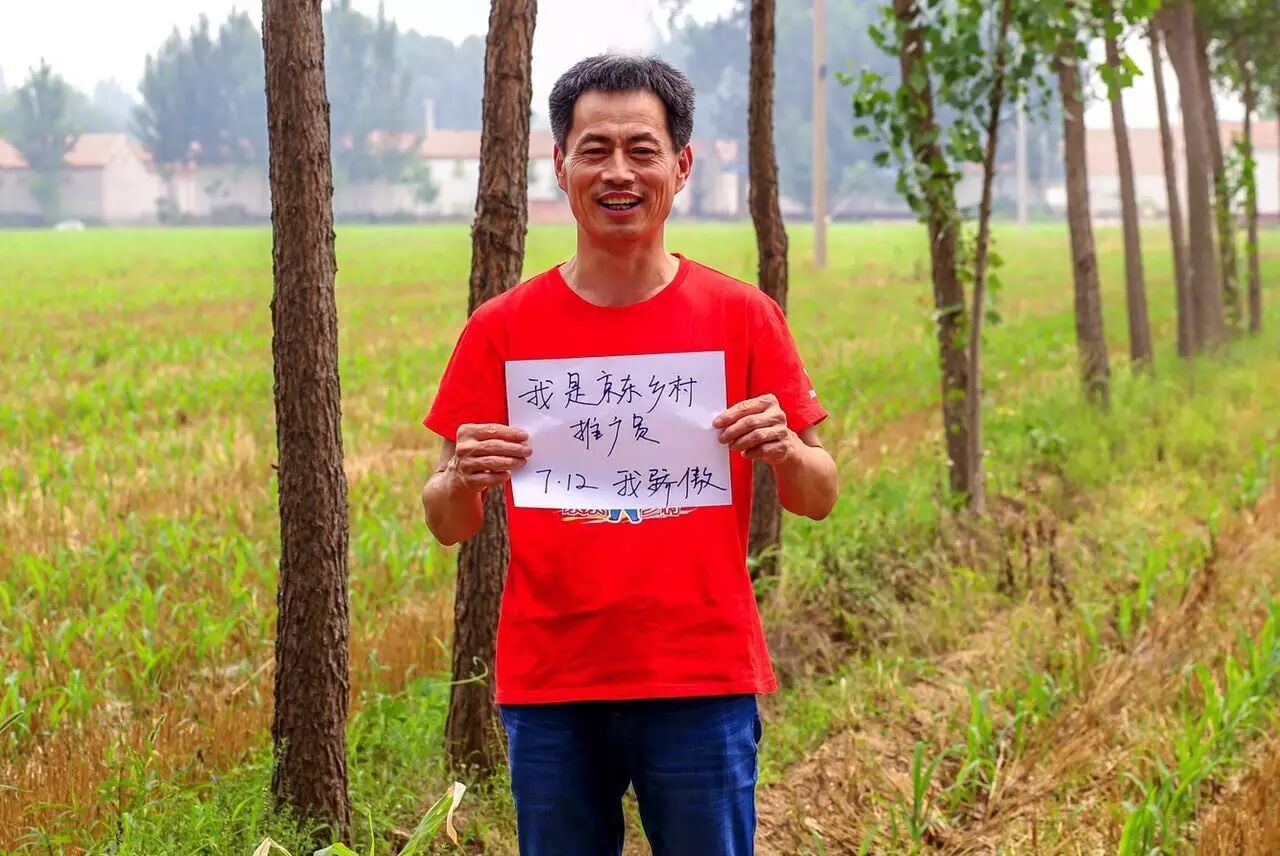 我是京东乡村
推广员
7.12 我骄傲